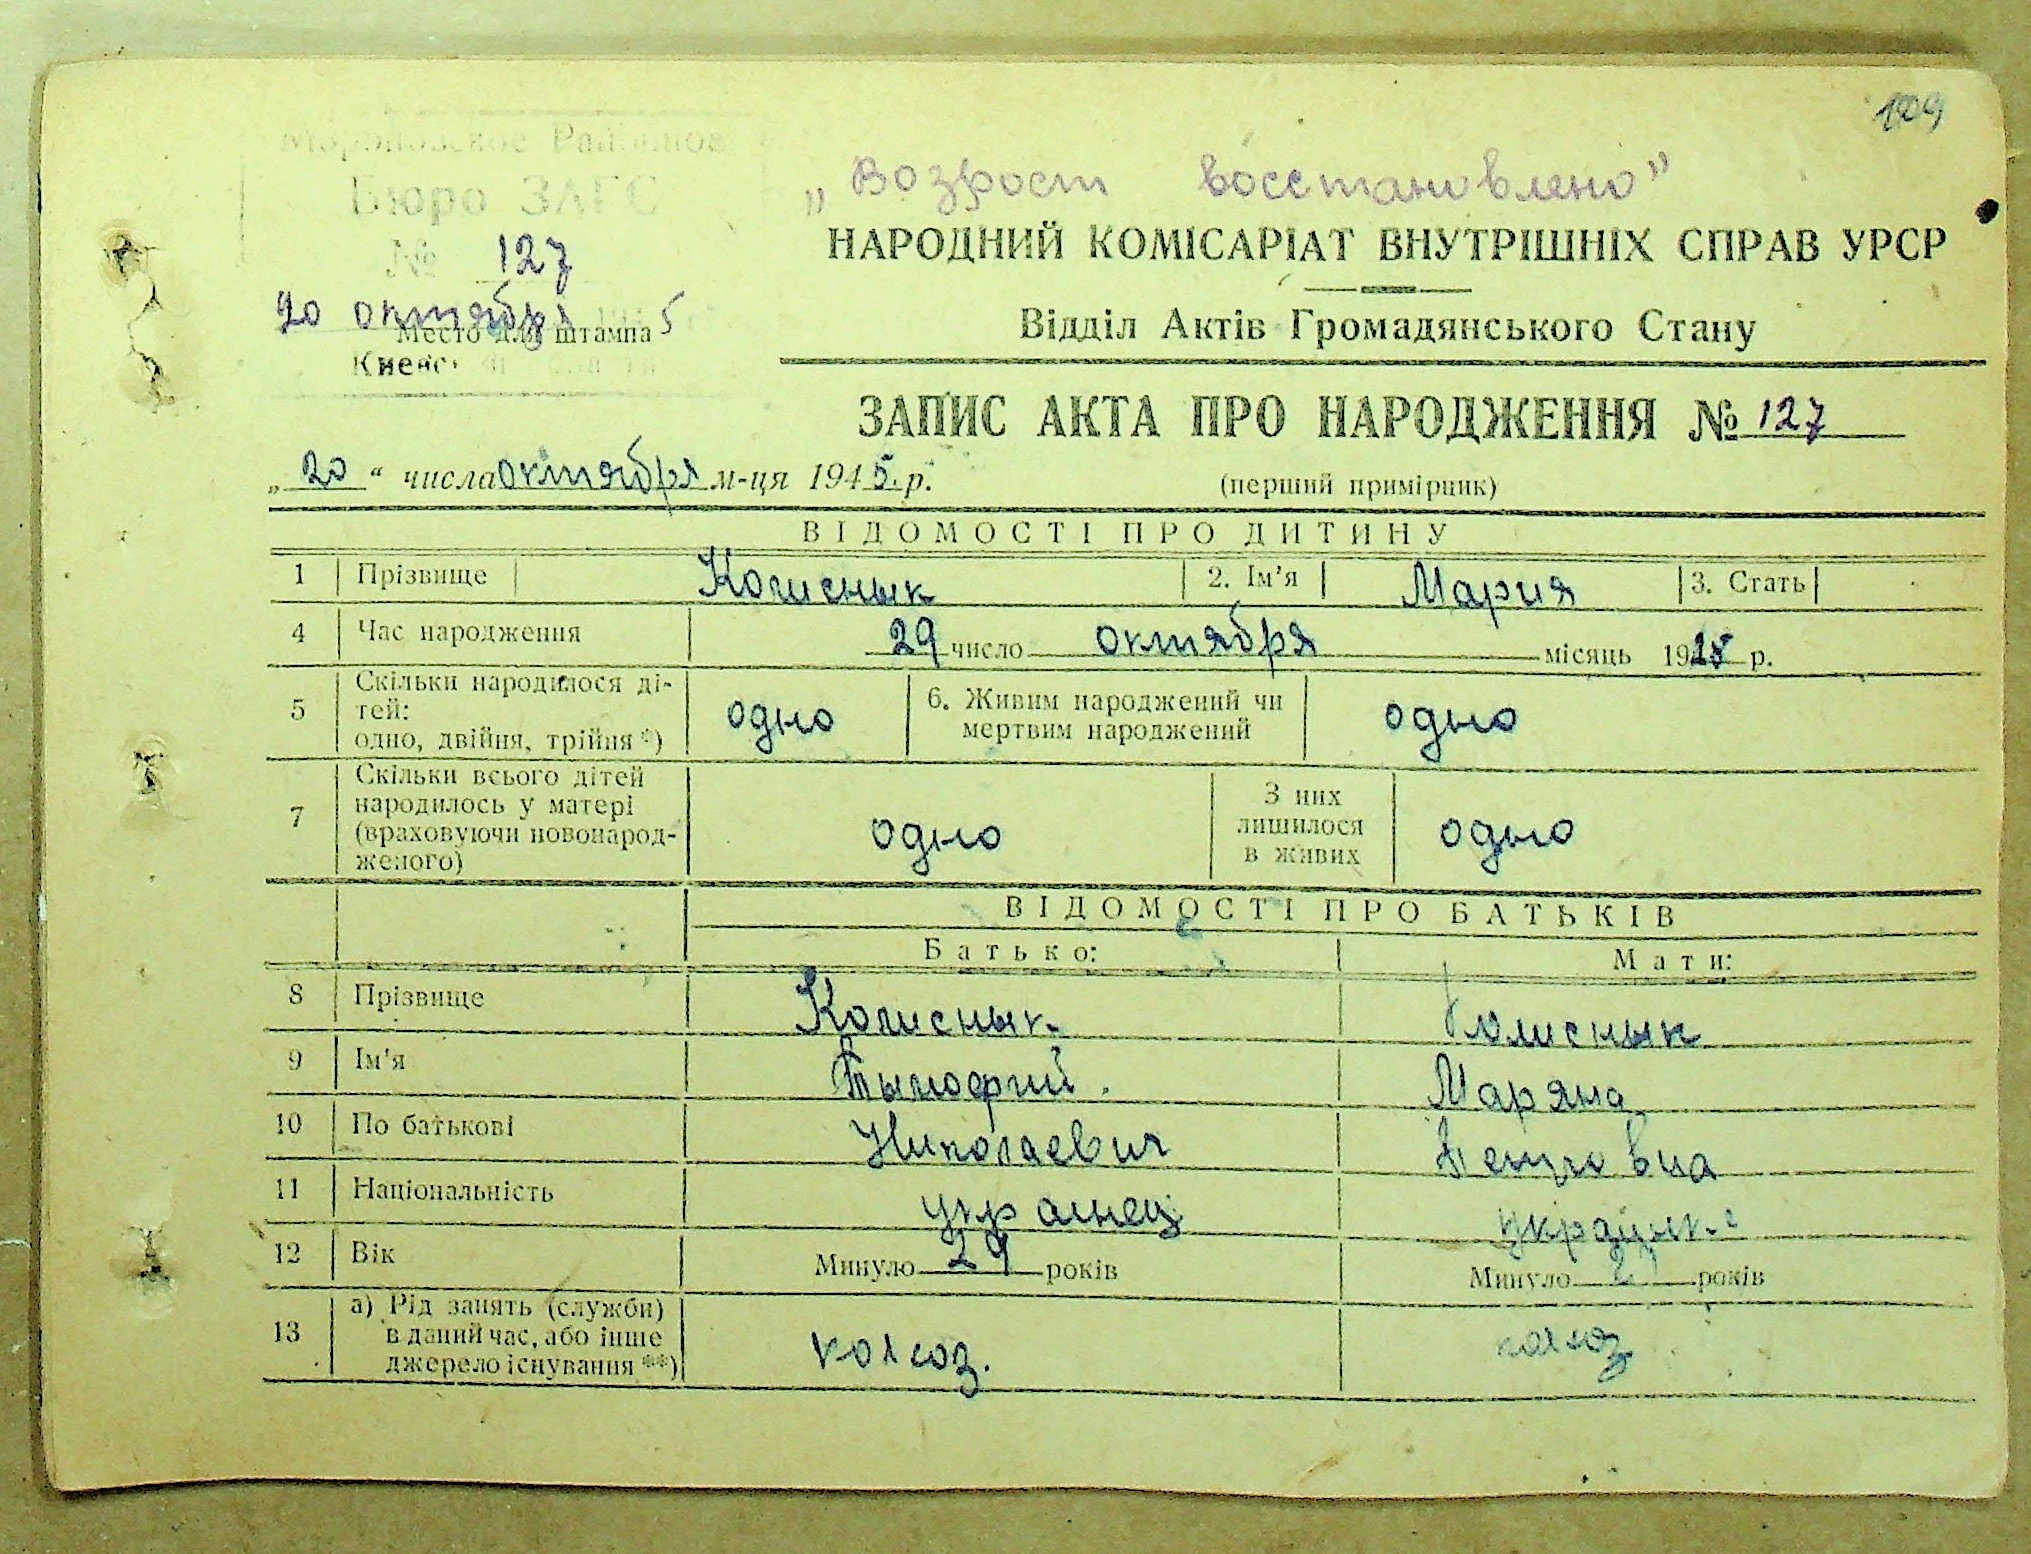 109
„Возрост восстановлено”
Бюро ЗАГС
№ 127
20 октября 5
Место для штампа
Киевс
НАРОДНИЙ КОМІСАРІАТ ВНУТРІШНІХ СПРАВ УРСР
Відділ Актів Громадянського Стану
ЗАПИС АКТА ПРО НАРОДЖЕННЯ № 127
„20“ числа октября м-ця 1945. р.
(перший примірник)
ВІДОМОСТІ ПРО ДИТИНУ
1 Прізвище Колиснык 2. Ім'я Мария 3. Стать
4 Час народження 29 число октября місяць 1925 р.
5 Скільки народилося ді-
тей:
одно, двійня, трійня *) одно 6. Живим народжений чи
мертвим народжений одно
7 Скільки всього дітей
народилось у матері
(враховуючи новонарод-
женого) одно З них
лишилося
в живих одно
ВІДОМОСТІ ПРО БАТЬКІВ
Батько: Мати:
8 Прізвище Колиснык. Колиснык
9 Ім'я Тымофий. Маряна
10 По батькові Николаевич Петровна
11 Національність украинец
12 Вік Минуло 29 років Минуло років
13 а) Рід занять (служби)
в даний час, або інше
джерело існування **) колхоз. колхоз